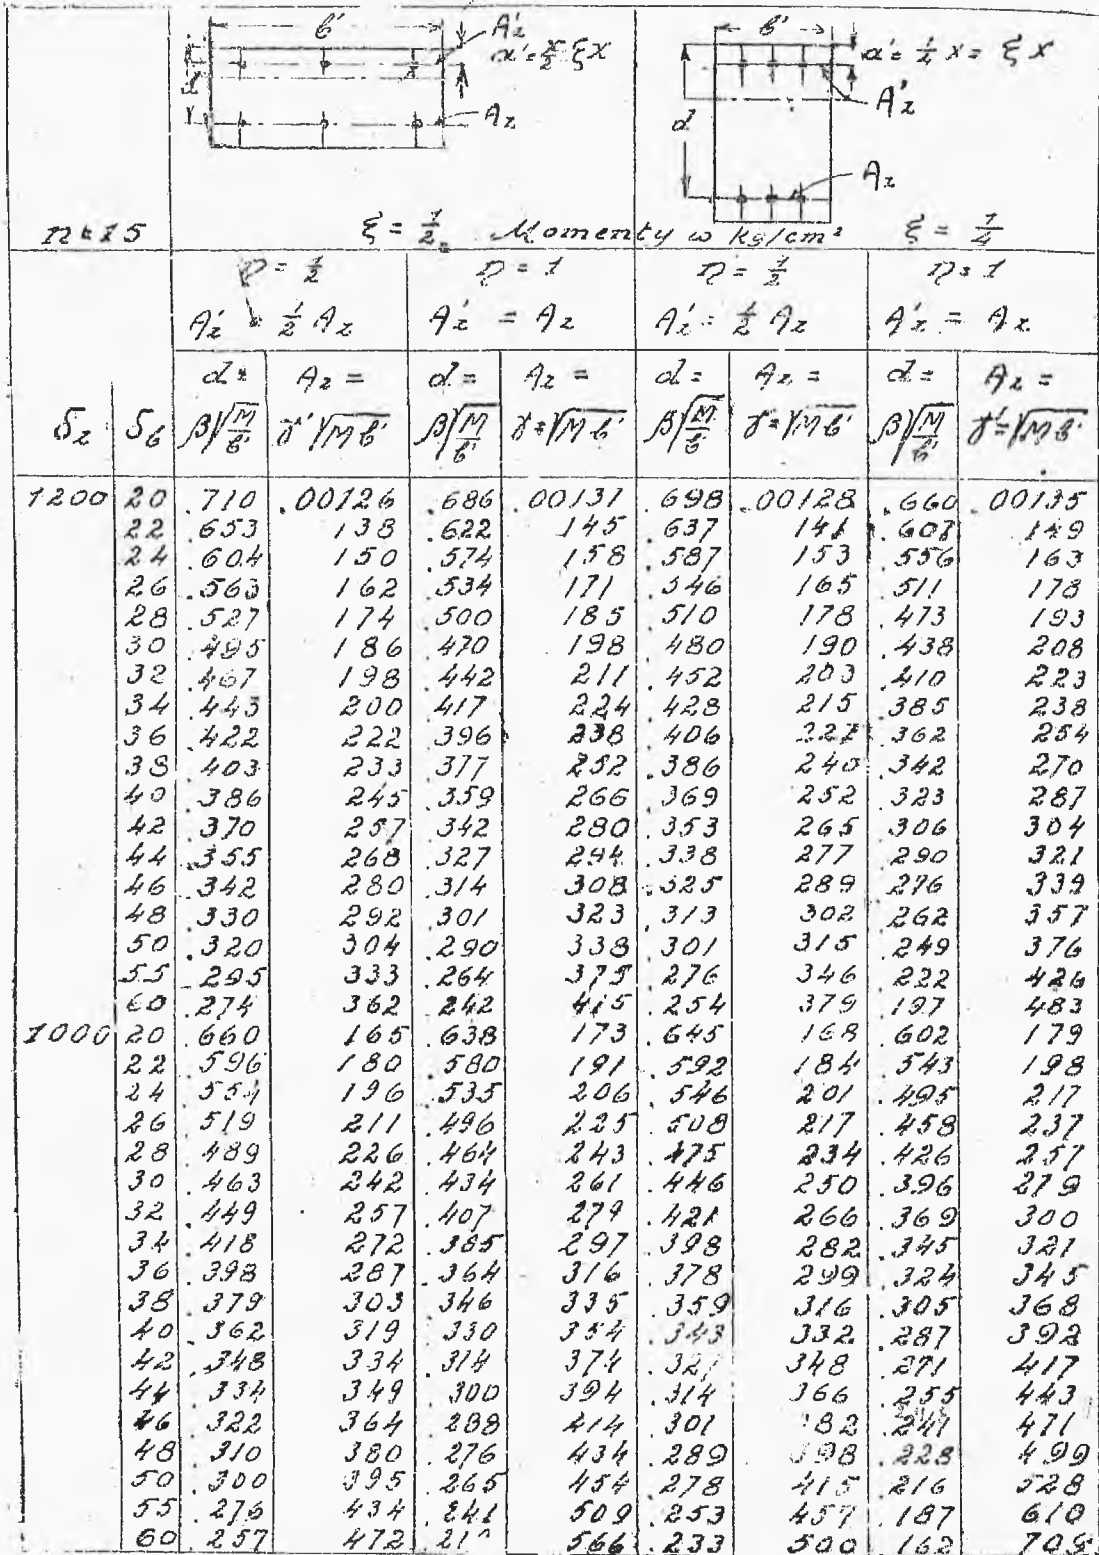 b' A'z b'
α' = x/2 = ξx α' = 1/4 x = ξx
d A'z
Az d Az
n = 15 ξ = 1/2 Momenty w kg/cm² ξ = 1/4
η = 1/2 η = 1 η = 1/2 η = 1
A'z = 1/2 Az A'z = Az A'z = 1/2 Az A'z = Az
d = Az = d = Az = d = Az = d = Az =
δz δb β√M/b' γ√Mb' β√M/b' γ=√Mb' β√M/b' γ=√Mb' β√M/b' γ=√Mb'
1200 20 .710 .00126 .686 .00131 .698 .00128 .660 .00135
22 .653 138 .622 145 .637 141 .607 149
24 .604 150 .574 158 .587 153 .556 163
26 .563 162 .534 171 .546 165 .511 178
28 .527 174 .500 185 .510 178 .473 193
30 .495 186 .470 198 .480 190 .438 208
32 .467 198 .442 211 .452 203 .410 223
34 .443 200 .417 224 .428 215 .385 238
36 .422 222 .396 238 .406 227 .362 254
38 .403 233 .377 252 .386 240 .342 270
40 .386 245 .359 266 .369 252 .323 287
42 .370 257 .342 280 .353 265 .306 304
44 .355 268 .327 294 .338 277 .290 321
46 .342 280 .314 308 .325 289 .276 339
48 .330 292 .301 323 .313 302 .262 357
50 .320 304 .290 338 .301 315 .249 376
55 .295 333 .264 375 .276 346 .222 426
60 .274 362 .242 415 .254 379 .197 483
1000 20 .660 165 .638 173 .645 168 .602 179
22 .596 180 .580 191 .592 184 .543 198
24 .554 196 .535 206 .546 201 .495 217
26 .519 211 .496 225 .508 217 .458 237
28 .489 226 .464 243 .475 234 .426 257
30 .463 242 .434 261 .446 250 .396 279
32 .449 257 .407 279 .421 266 .369 300
34 .418 272 .385 297 .398 282 .345 321
36 .398 287 .364 316 .378 299 .324 345
38 .379 303 .346 335 .359 316 .305 368
40 .362 319 .330 354 .343 332 .287 392
42 .348 334 .314 374 .327 348 .271 417
44 .334 349 .300 394 .314 366 .255 443
46 .322 364 .288 414 .301 82 471
48 .310 380 .276 434 .289 398 .228 499
50 .300 395 .265 454 .278 415 .216 528
55 .276 434 .241 509 .253 457 .187 610
60 .257 472 566 .233 500 .162 709